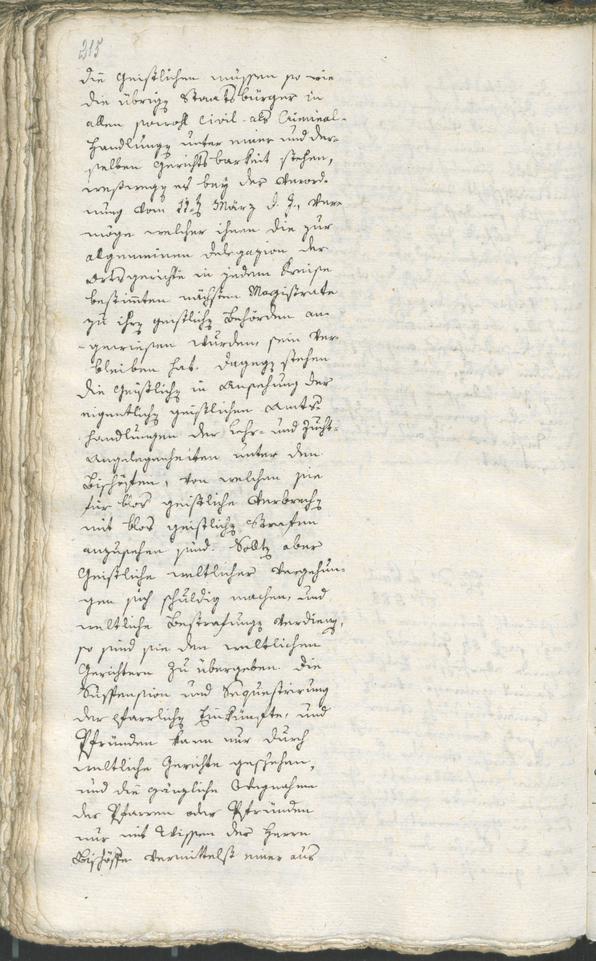 215
Die Geistlichen müssen so wie
die übrige Staatsbürger in
allen sowohl Civil- als Criminal-
handlungen unter einer und der-
selben Gerichtsbarkeit stehen,
weßwegen es bey der Verord-
nung vom 11ten März d. J., ver-
möge welcher ihnen die zur
algemeinen Delegazion der
Ortsgerichte in jedem Kreise
bestimten nächsten Magistrate
zu ihren geistlichen Behörden an-
gewiesen wurden, sein Ver-
bleiben hat. Dagegen stehen
die Geistlichen in Ansehung der
eigentlichen geistlichen Amts-
handlungen der Lehr- und Zucht-
Angelegenheiten unter den
Bischöfen, von welchen sie
für blos geistliche Verbrechen
mit blos geistlichen Strafen
anzusehen sind. Sollten aber
Geistliche weltlicher Vergehun-
gen sich schuldig machen, und
weltliche Bestrafungen verdienen,
so sind sie den weltlichen
Gerichtern zu übergeben. Die
Suspension und Sequestrirung
der pfarrlichen Einkünfte, und
Pfründen kann nur durch
weltliche Gerichte geschehen,
und die gänzliche Wegnahme
der Pfarren oder Pfründen
nur mit Wissen der Herrn
Bischöffe vermittelst einer aus